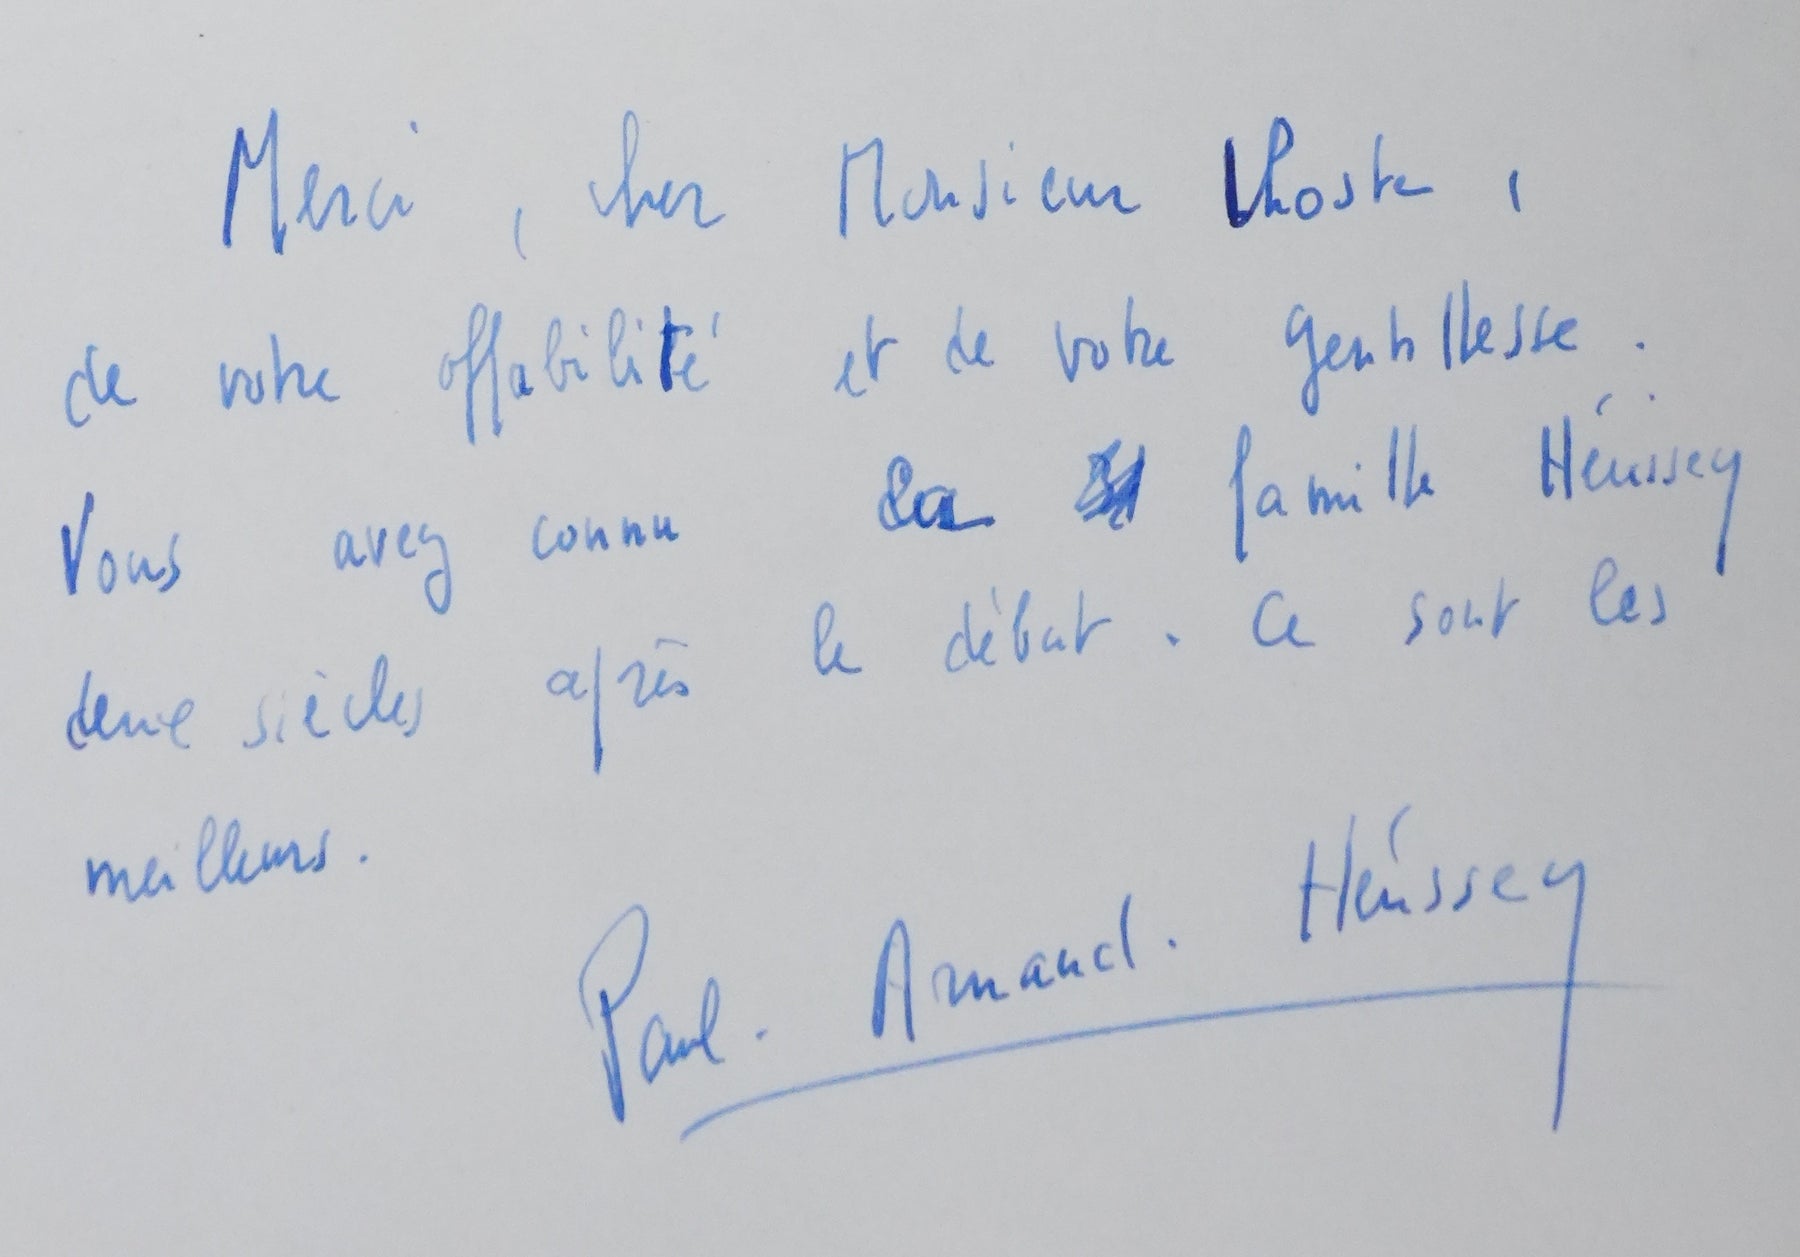 Merci, cher Monsieur Lhoste,
de votre affabilité et de votre gentillesse.
Vous avez connu la famille Héüssey
deux siècles après le début. Ce sont les
meilleurs.
Paul. Armand. Héüssey